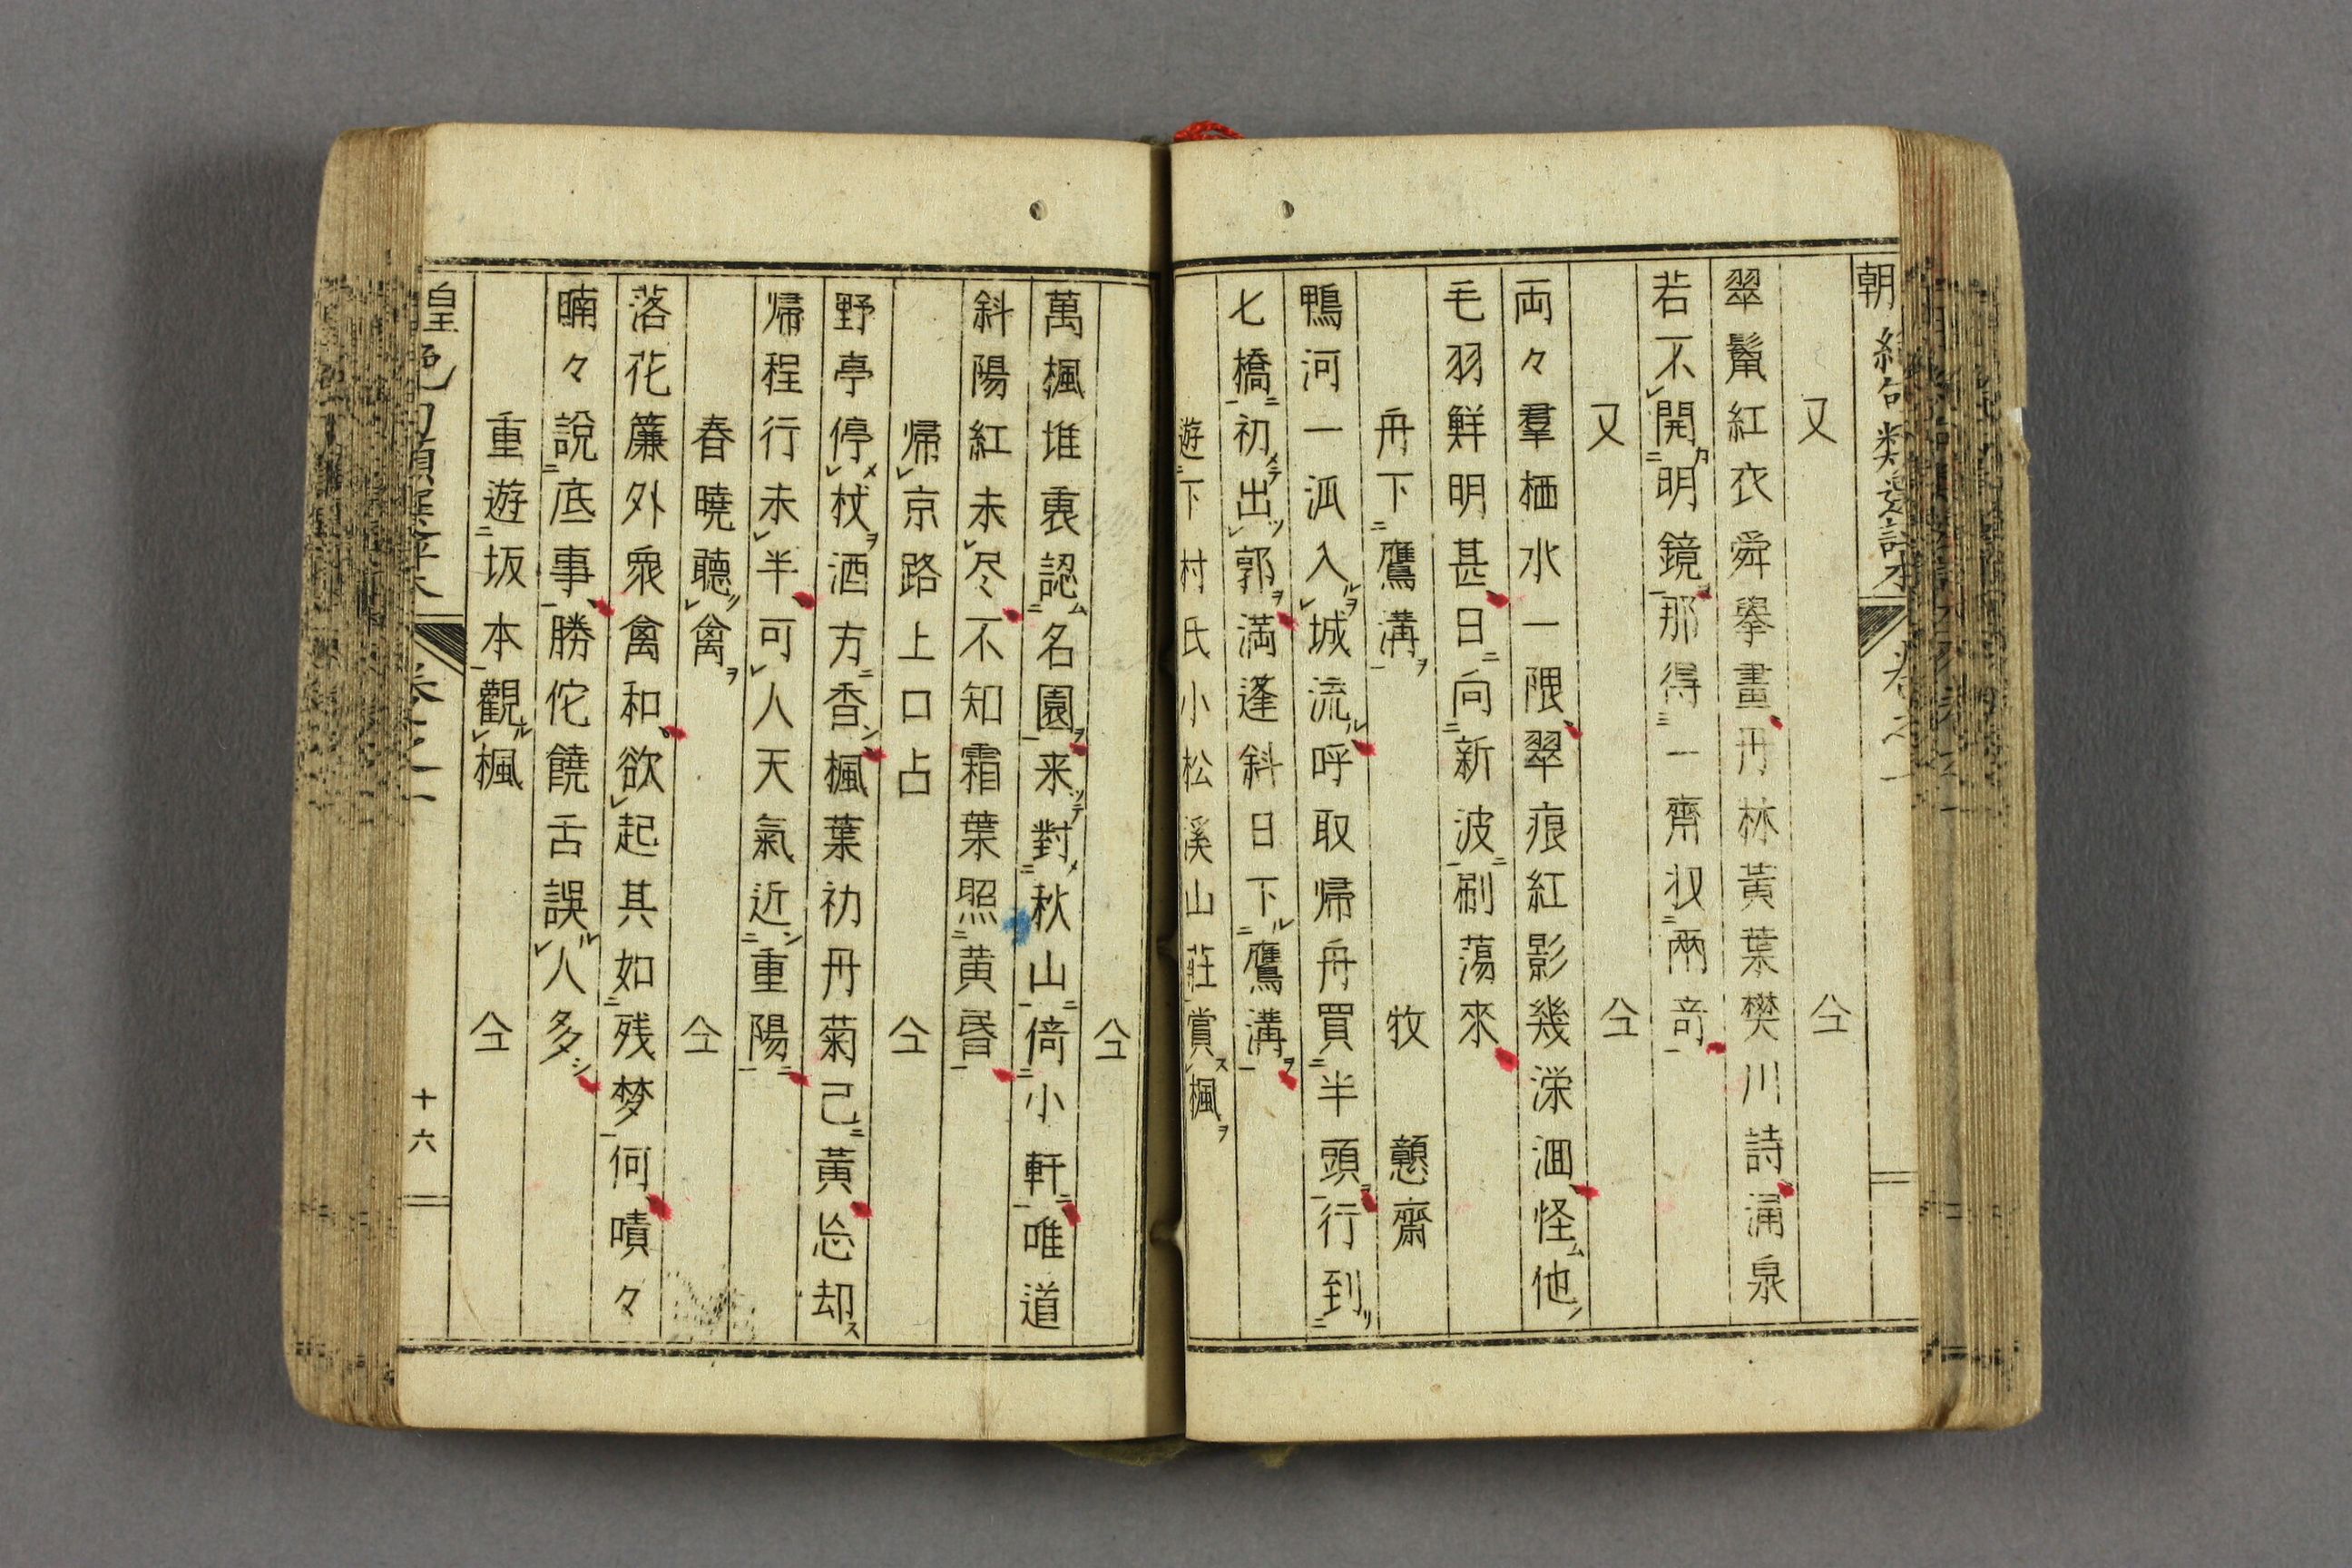 朝絶句類選評本 卷之一
又 仝
翠鬣紅衣舜擧畫丹林黃葉樊川詩涌泉
若不開明鏡那得一齊收兩竒
又 仝
両々羣栖水一隈翠痕紅影幾濚洄怪他
毛羽鮮明甚日向新波刷蕩來
舟下鷹溝 牧 戇齋
鴨河一派入城流呼取帰舟買半頭行到
七橋初出郭満蓬斜日下鷹溝
遊下村氏小松溪山莊賞楓
仝
萬楓堆裏認名園来對秋山倚小軒唯道
斜陽紅未尽不知霜葉照黄昏
帰京路上口占 仝
野亭停杖酒方香楓葉初丹菊己黃忩却
帰程行未半可人天氣近重陽
春曉聽禽 仝
落花簾外衆禽和欲起其如残梦何嘖々
喃々說底事勝佗饒舌誤人多
重遊坂本觀楓 仝
皇 卷之一 十六